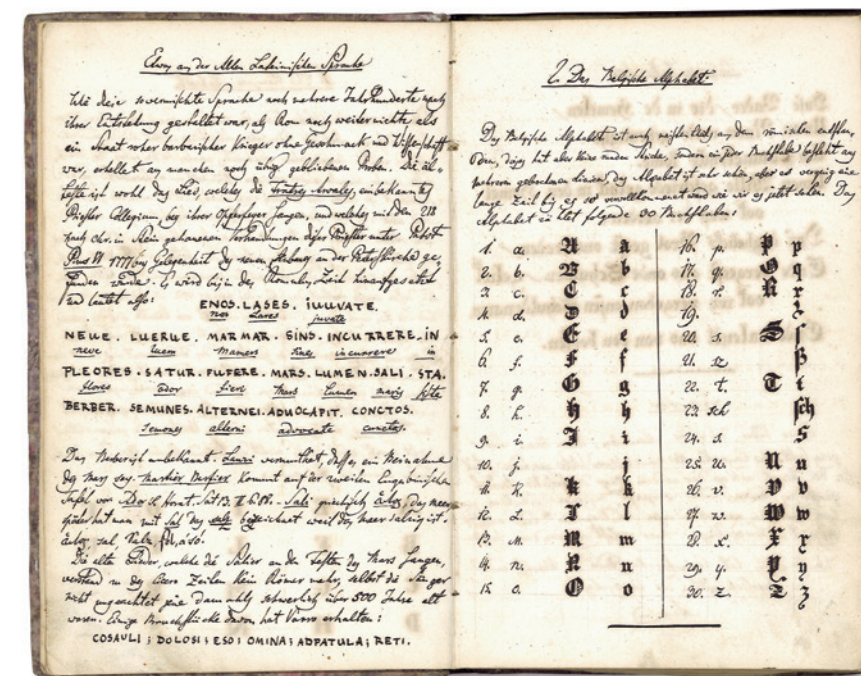 Etwas an der Alten Lateinischen Sprache
Wie diese so vermischte Sprache noch mehrere Jahrhunderte nach
ihrer Entstehung gestaltet war, als Rom noch weiter nichts als
ein Staat roher barbarischer Krieger ohne Geschmack und Wissenschaft
war, erhellet an manchen noch übrig gebliebenen Proben. Die äl-
teste ist wohl das Lied, welches die Fratres Arvales, ein bekanntes
Priester Collegium, bey ihrer Opferfeyer sangen, und welches mit den 218
nach Chr. in Stein gehauenen Verhandlungen dieser Priester unter Pabst
Pius VI 1777 bey Gelegenheit des neuen an der Peterskirche ge-
funden wurde. Es wird bis in des Romulus Zeit hinaufgesetzt
und lautet also:
ENOS. LASES. IUUVATE.
nos Lares juvate
NEUE. LUERUE. MARMAR. SINS. INCURRERE. IN
neve luem Mamers sines incurrere in
PLEORES. SATUR. FUFERE. MARS. LUMEN. SALI. STA.
flores ador fieri Mars Lumen maris siste
BERBER. SEMUNES. ALTERNEI. ADUOCAPIT. CONCTOS.
Semones alterni advocate cunctos.
Das Berber ist unbekannt Lanzi vermuthet, daß es ein Beinahme
des Mars sey. kommt auf der zweiten Eugubinischen
Tafel vor. Horat. Sat. Sali griechisch das meer
später hat man mit Sal das salz bezeichnet weil das meer salzig ist.
sal
Die alten Lieder, welche die Salier an den Festen des Mars sangen,
verstand zu des Cicero Zeiten kein Römer mehr, selbst die Sänger
nicht ungeachtet sie damahls schwerlich über 500 Jahre alt
waren. Einige Bruchstücke davon hat Varro erhalten:
COSAULI; DOLOSI; ESO; OMINA; ADPATULA; RETI.
2. Das Belgische Alphabet
Das Belgische Alphabet ist auch nichts als an dem römischen entstan-
den, dazu hat aber keine runden Striche, sondern ein jeder Buchstabe besteht aus
mehreren gebrochnen das Alphabet ist sehr schön, aber es vergieng eine
lange Zeit bis es so vervollkommnet ward wie wir es jetzt sehen. Das
Alphabet zählet folgende 30 Buchstaben:
1. a. A a
2. b. B b
3. c. C c
4. d. D d
5. e. E e
6. f. F f
7. g. G g
8. h. H h
9. i. I i
10. j. j
11. k. K k
12. L. L l
13. m. M m
14. n. N n
15. o. O o
16. p. P p
17. q. Q q
18. r. R r
19.
20. s. S ſ
21. sz ß
22. t. T t
23. sch ſch
24. s. s
25. u. U u
26. v. V v
27. w. W w
28. x. X x
29. y. Y y
30. z. Z z